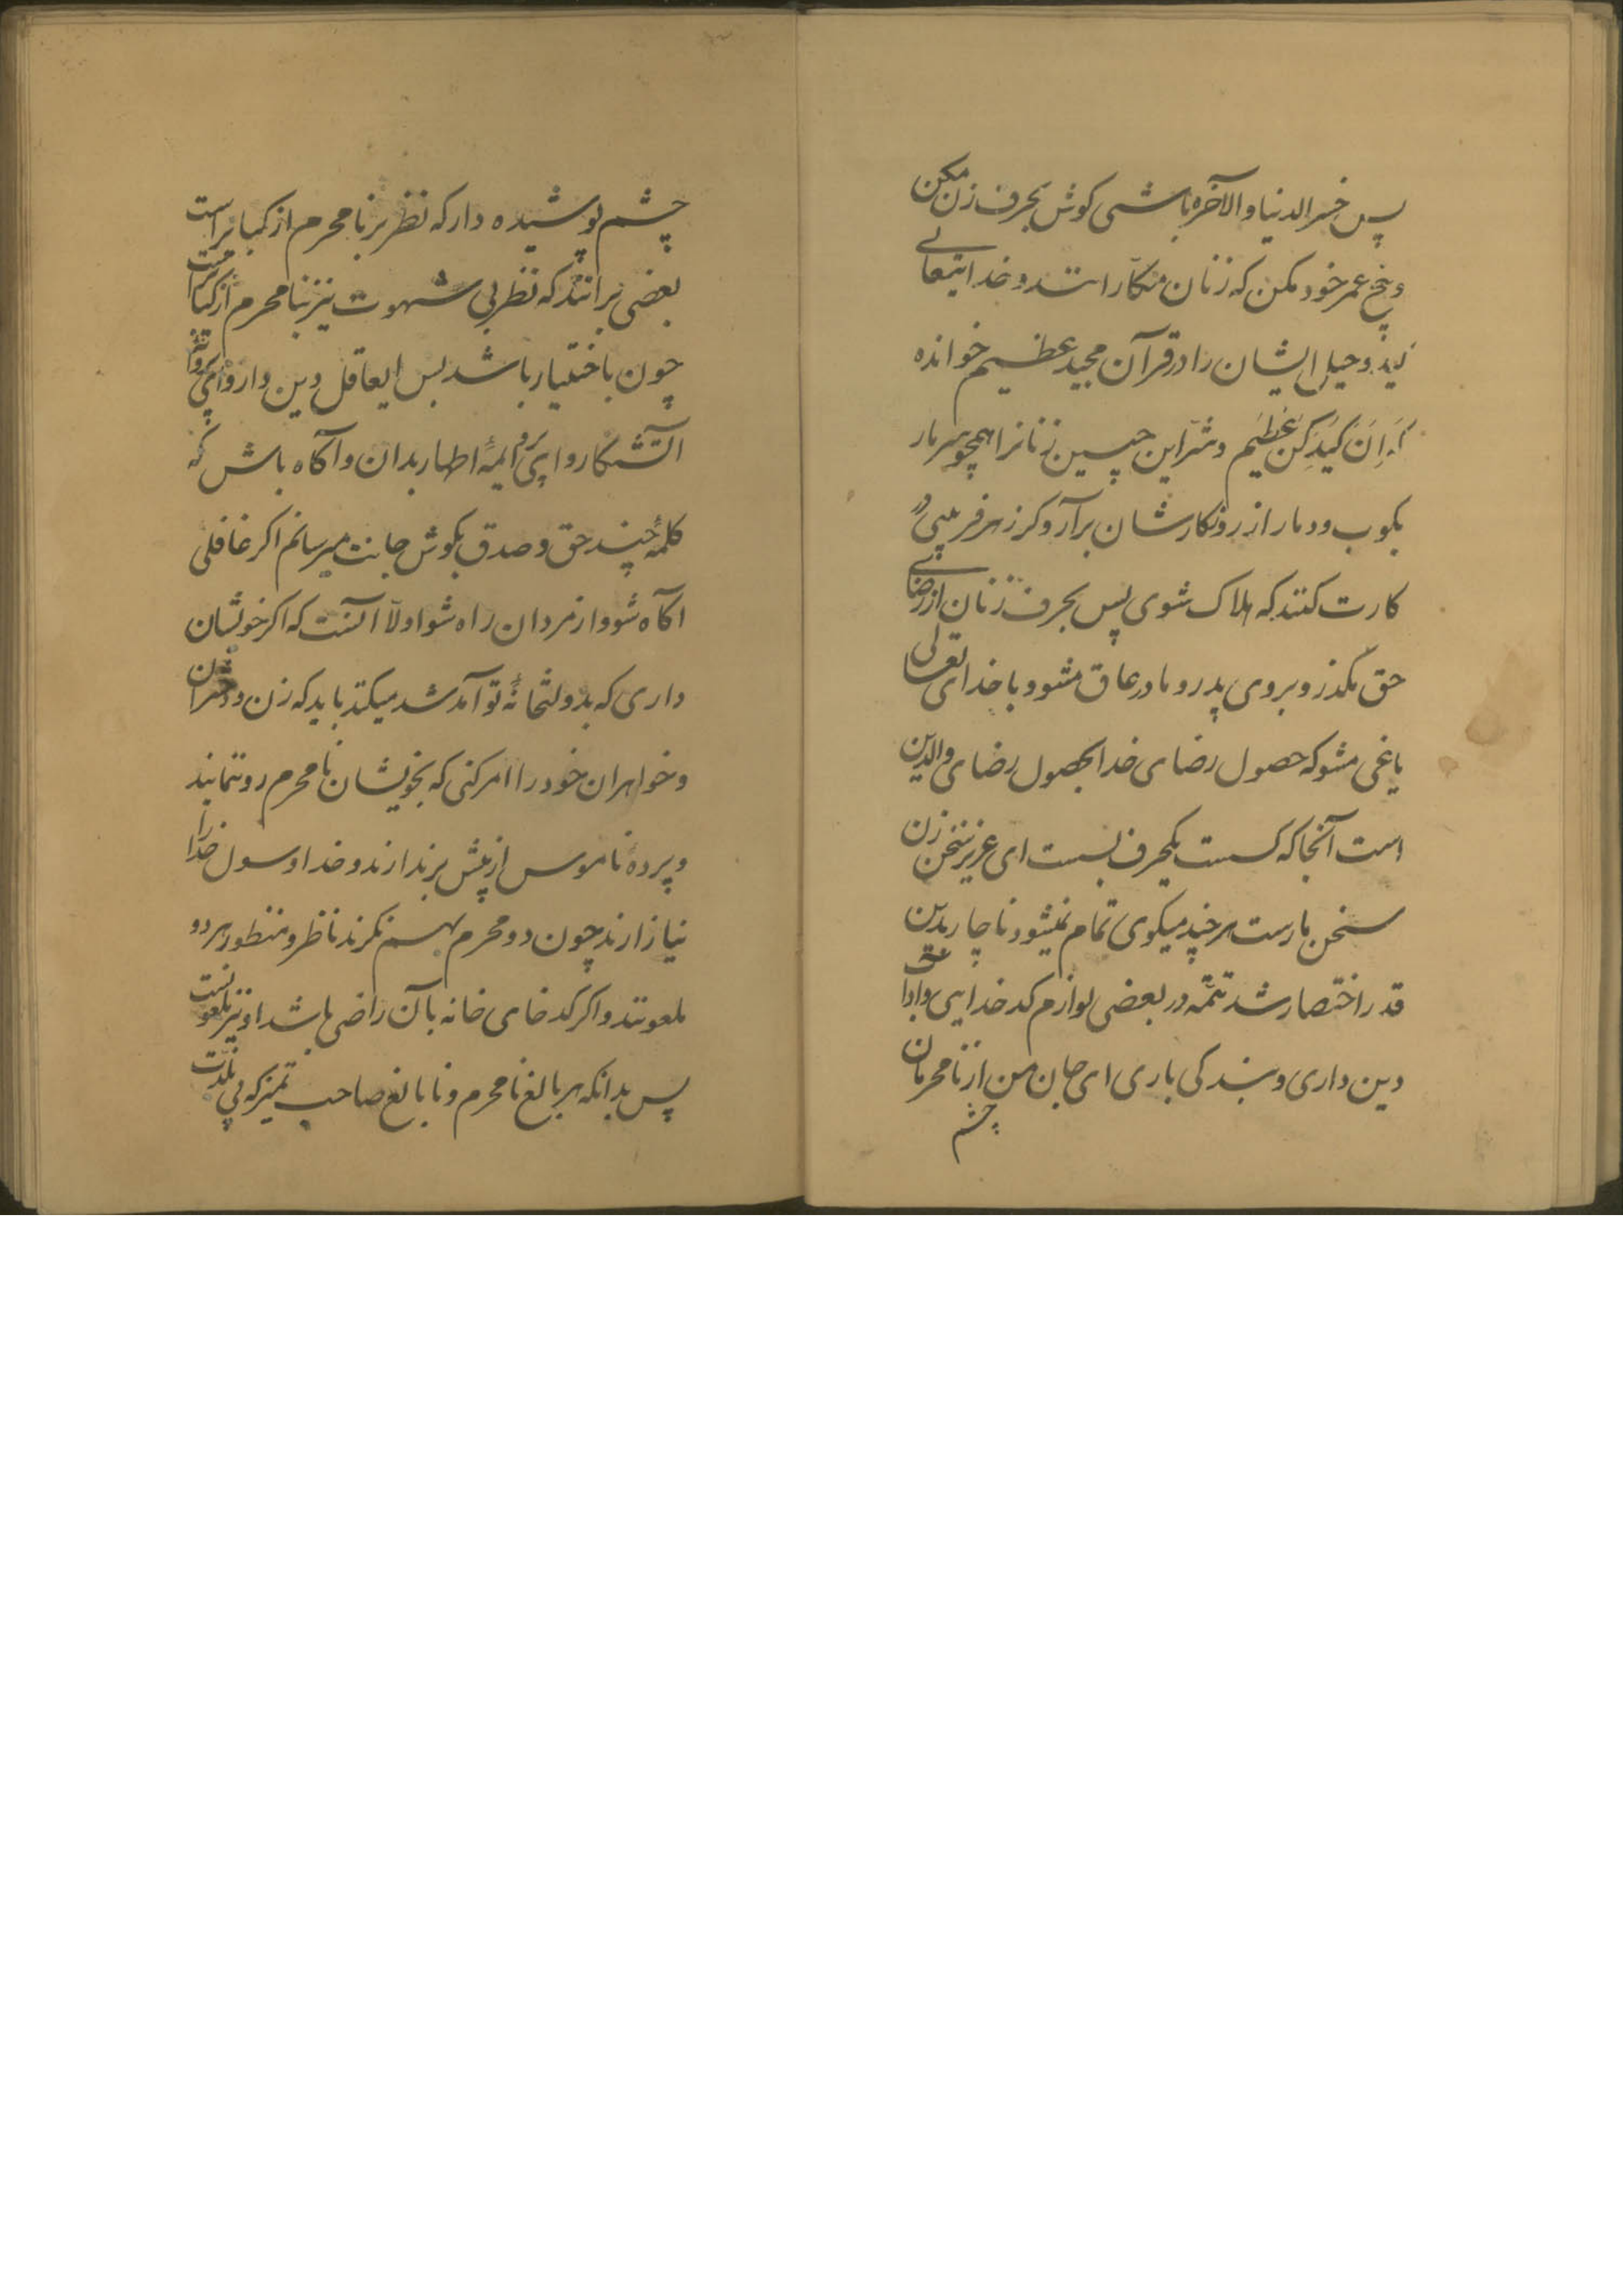 پس خسر الدنیا والآخره باشی کوش بحرف زن مکن
و بیخ عمر خود مکن که زنان مکارانند و خدایتعالی
کید و حیل ایشان را در قرآن مجید عظیم خوانده
اِنَ کَیدَکُنَ عَظیم و شر این چنین زنانرا همچو سر مار
بکوب و دمار از روزکارشان برآر و کرنه فریبی در
کارت کنند که هلاک شوی پس بحرف زنان از رضای
حق مکذر و بروی پدر و مادر عاق مشو و با خدای تعالی
یاغی مشو که حصول رضای خدا بحصول رضای والدین
است آنجا که کسست یکحرف بسست ای عزیز سخن زن
سخن مارست هر چند میکوی تمام نمیشود ناچار بدین
قدر اختصار شد تتمه در بعضی لوازم کدخدایی و آداب
دین داری و بندکی باری ای جان من از نامحرمان
چشم
چشم پوشیده دار که نظر بر نامحرم از کبایر است
بعضی برانند که نظر بی شهوت نیز بنامحرم از کبایر است
چون باختیار باشد پس ایعاقل دین دار و ای
آلتشکار و ای پیرو ائمهٔ اطهار بدان و آکاه باش که
کلمهٔ چند حق و صدق بکوش جانت میرسانم اکر غافلی
آکاه شو و از مردان راه شو اولا آنست که اکر خویشان
داری که بدولتخانهٔ تو آمد شد میکنند باید که زن و دختران
و خواهران خود را امر کنی که بخویشان نامحرم رو ننمایند
و پردهٔ ناموس از پیش برندازند و خدا و رسول خدا را
نیازارند چون دو محرم بهم نکرند ناظر و منظور هر دو
ملعونند و اکر کدخدای خانه بآن راضی باشد او نیز ملعونست
پس بدانکه هر بالغ نامحرم و نابالغ صاحب تمیز که پی بلذت